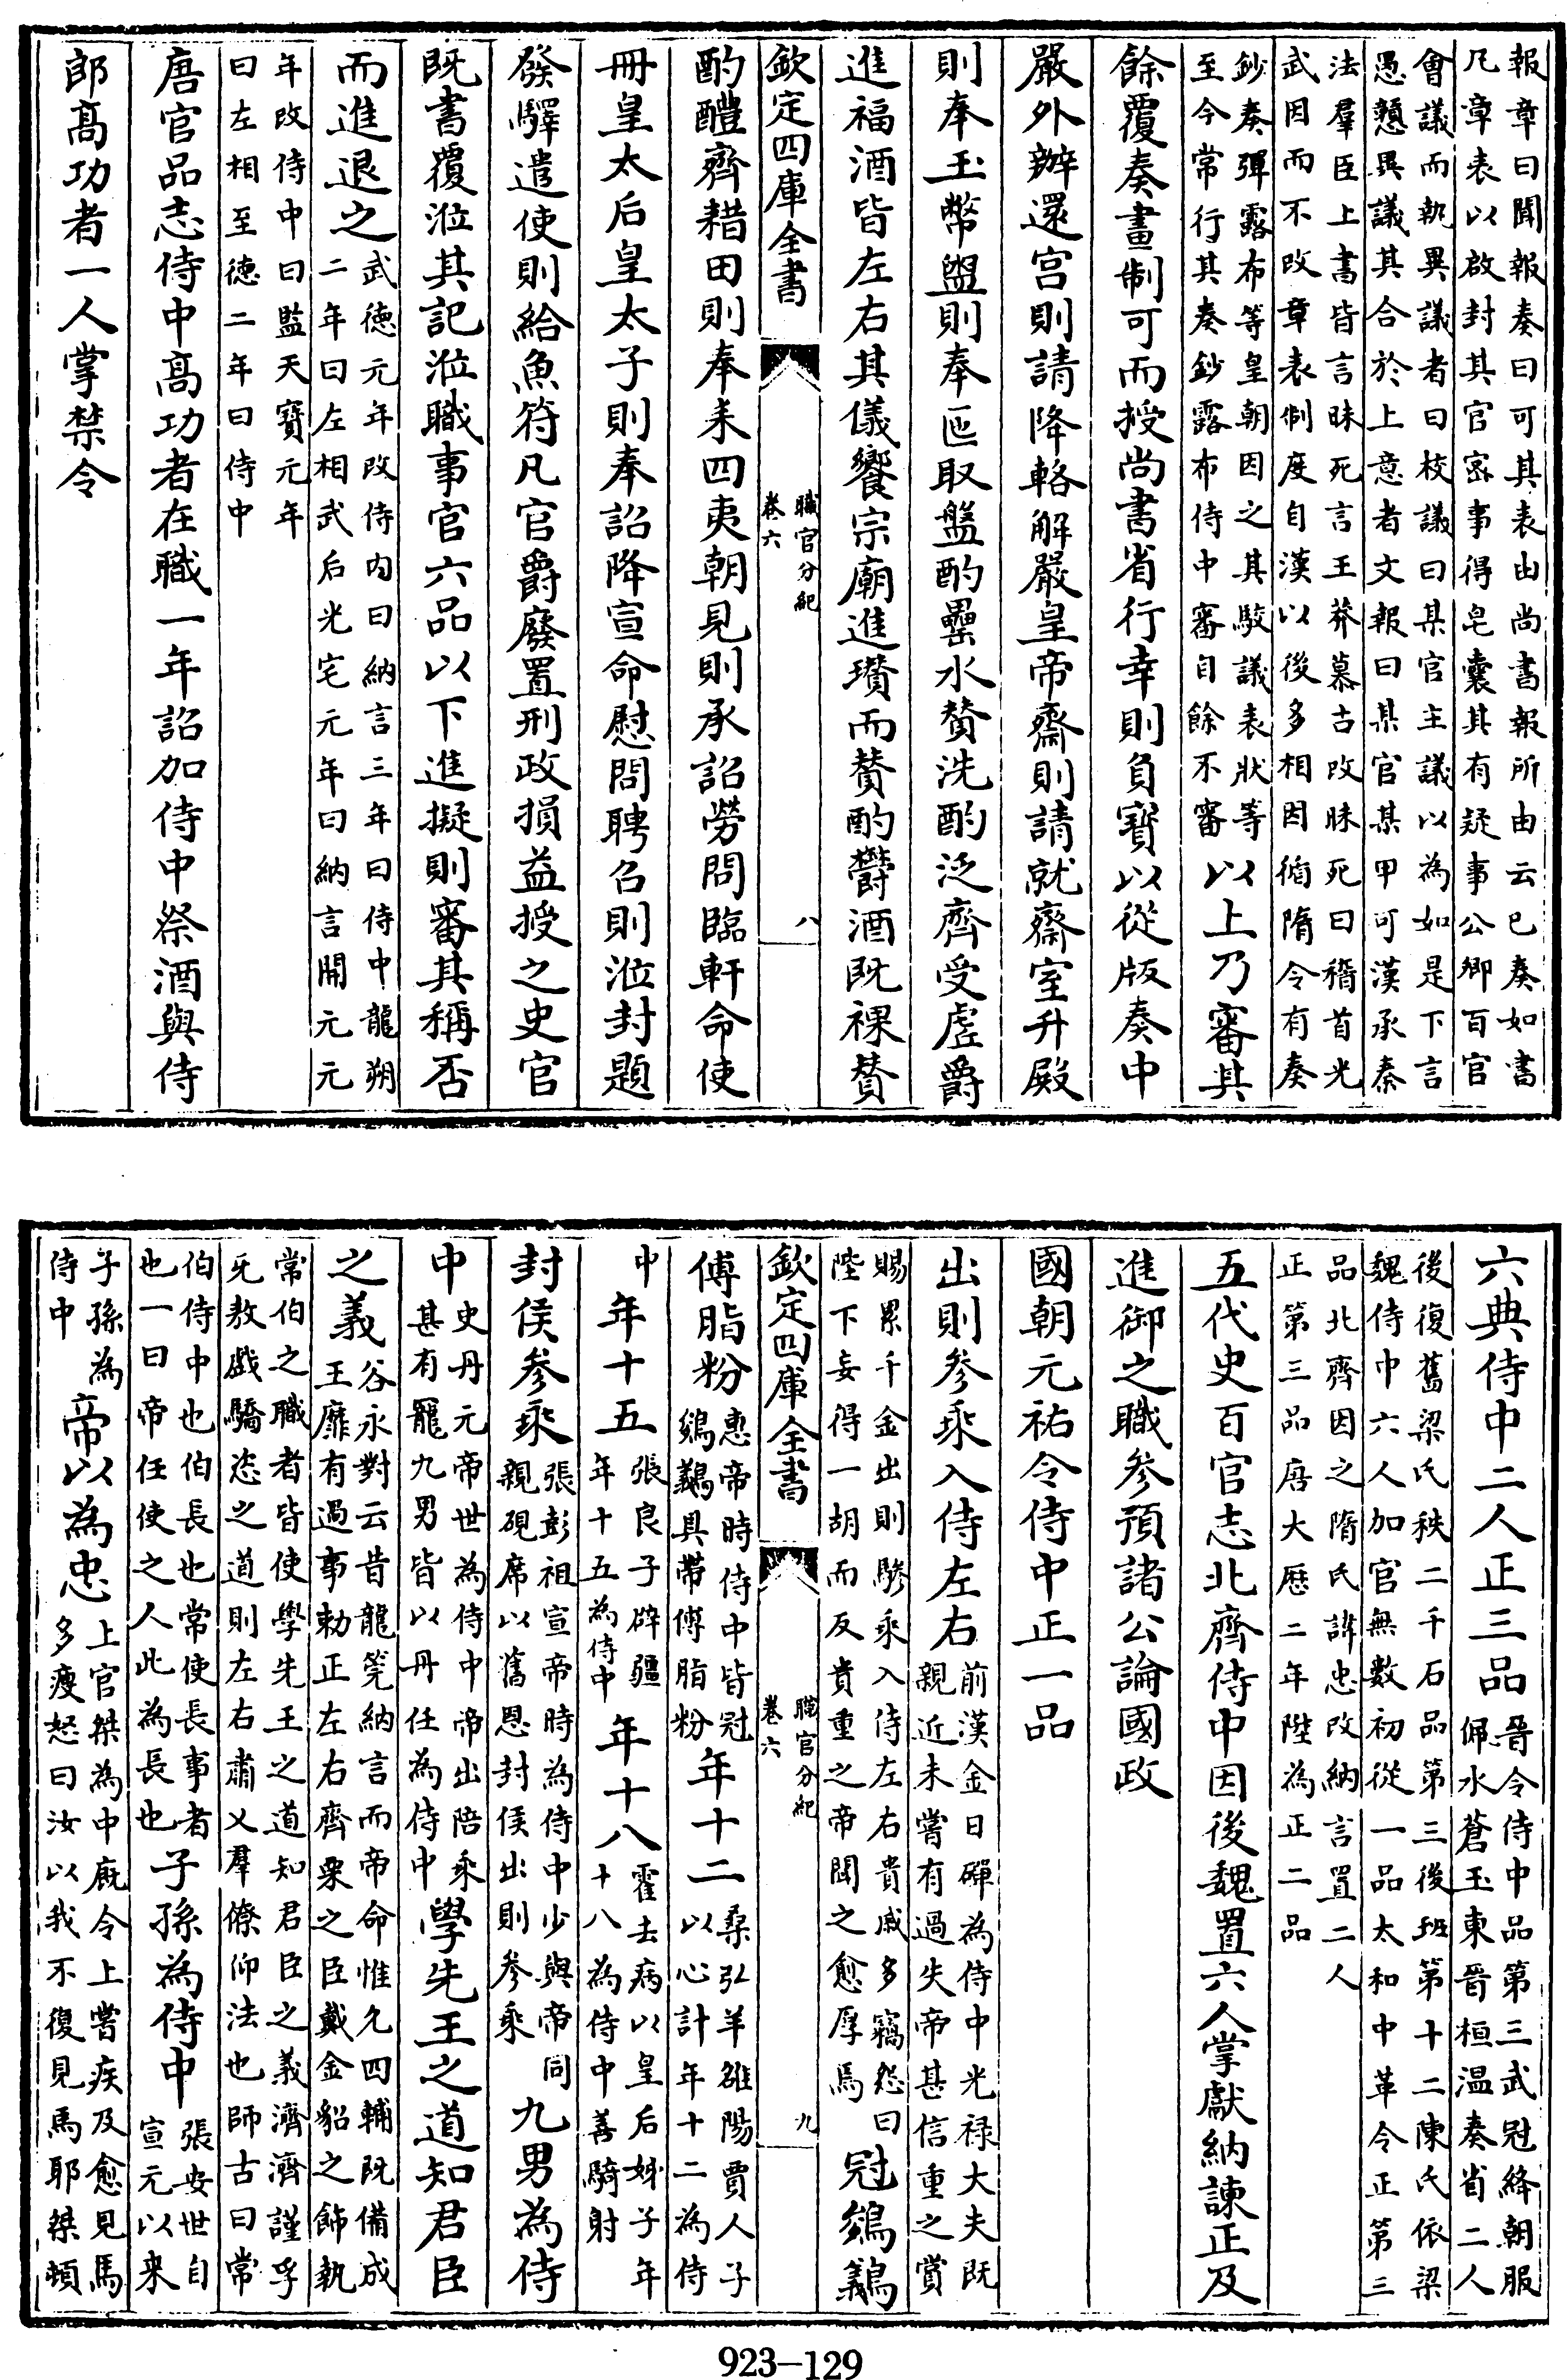 報章曰聞報奏曰可其表由尚書報所由云已奏如書
凡章表以啟封其官宻事得皂囊其有疑事公卿百官
㑹議而執異議者曰校議曰某官主議以為如是下言
愚戇異議其合於上意者文報曰某官某甲可漢承秦
法羣臣上書皆言昧死言王莽慕古改昧死曰稽首光
武因而不改章表制度自漢以後多相因循隋令有奏
鈔奏彈露布等皇朝因之其駮議表狀等
至今常行其奏鈔露布侍中審自餘不審以上乃審其
餘覆奏畫制可而授尚書省行幸則負寶以從版奏中
嚴外辦還宫則請降輅解嚴皇帝齋則請就齋室升殿
則奉玉幣盥則奉匜取盤酌罍水賛洗酌泛齊受虚爵
進福酒皆左右其儀饗宗廟進瓚而賛酌鬱酒既祼賛
欽定四庫全書
職官分紀
卷六
八
酌醴齊耤田則奉耒四夷朝見則承詔勞問臨軒命使
冊皇太后皇太子則奉詔降宣命慰問聘召則涖封題
發驛遣使則給魚符凡官爵廢置刑政損益授之史官
既書覆涖其記涖職事官六品以下進擬則審其稱否
而進退之武徳元年改侍内曰納言三年曰侍中龍朔
二年曰左相武后光宅元年曰納言開元元
年改侍中曰監天寶元年
曰左相至徳二年曰侍中
唐官品志侍中髙功者在職一年詔加侍中祭酒與侍
郎髙功者一人掌禁令
六典侍中二人正三品晉令侍中品第三武冠絳朝服
佩水蒼玉東晉桓温奏省二人
後復舊梁氏秩二千石品第三後班第十二陳氏依梁
魏侍中六人加官無數初從一品太和中革令正第三
品北齊因之隋氏諱忠改納言置二人
正第三品唐大厯二年陞為正二品
五代史百官志北齊侍中因後魏置六人掌獻納諫正及
進御之職參預諸公論國政
國朝元祐令侍中正一品
出則參乘入侍左右前漢金日磾為侍中光禄大夫既
親近未嘗有過失帝甚信重之賞
賜累千金出則驂乘入侍左右貴戚多竊怨曰
陛下妄得一胡而反貴重之帝聞之愈厚焉冠鵕鸃
欽定四庫全書
職官分紀
卷六
九
傅脂粉惠帝時侍中皆冠
鵕鸃具帶傅脂粉年十二桑弘羊雒陽賈人子
以心計年十二為侍
中年十五張良子辟疆
年十五為侍中年十八霍去病以皇后姊子年
十八為侍中善騎射
封侯參乘張彭祖宣帝時為侍中少與帝同
親硯席以舊恩封侯出則參乘九男為侍
中史丹元帝世為侍中帝出陪乘
甚有寵九男皆以丹任為侍中學先王之道知君臣
之義谷永對云昔龍筦納言而帝命惟允四輔既備成
王靡有過事勅正左右齊栗之臣戴金貂之飾執
常伯之職者皆使學先王之道知君臣之義濟濟謹孚
旡敖戲驕恣之道則左右肅乂羣僚仰法也師古曰常
伯侍中也伯長也常使長事者
也一曰帝任使之人此為長也子孫為侍中張安世自
宣元以来
子孫為
侍中帝以為忠上官桀為中廐令上嘗疾及愈見馬
多瘦怒曰汝以我不復見馬耶桀頓
923—129